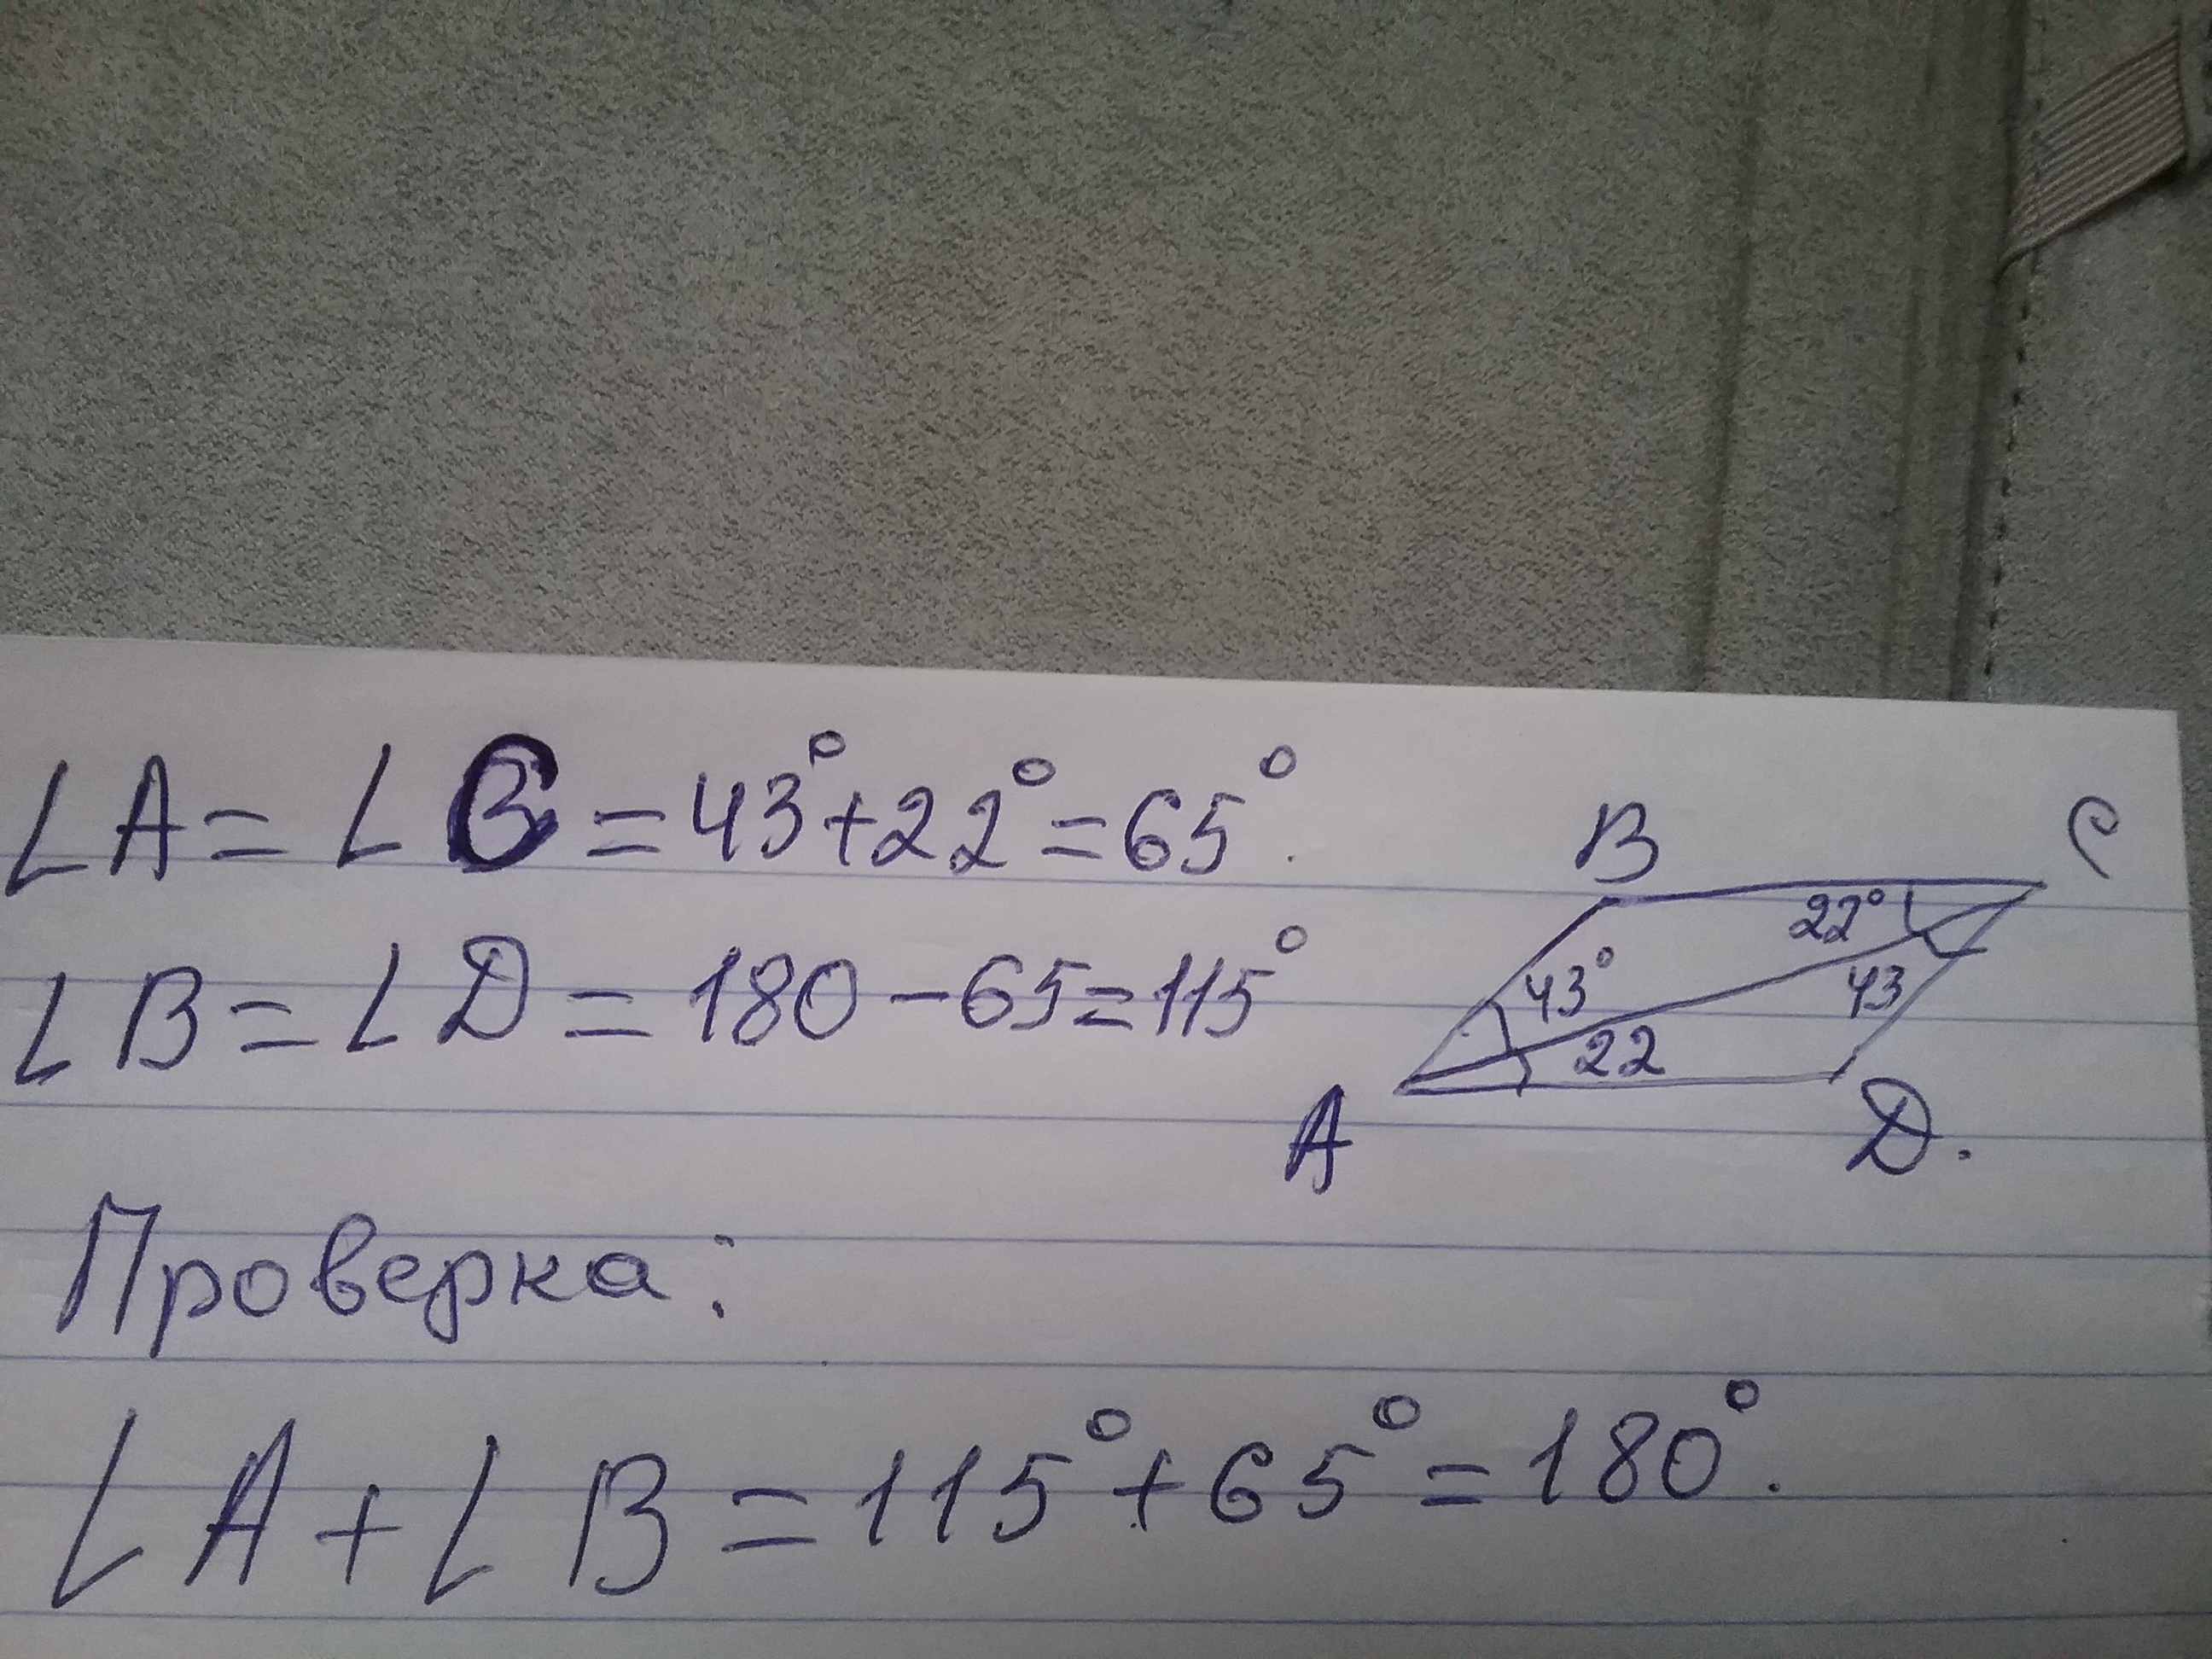 ∠A = ∠C = 43° + 22° = 65°.
∠B = ∠D = 180 - 65 = 115°
B C
22°
43° 43
22
A D.
Проверка:
∠A + ∠B = 115° + 65° = 180°.